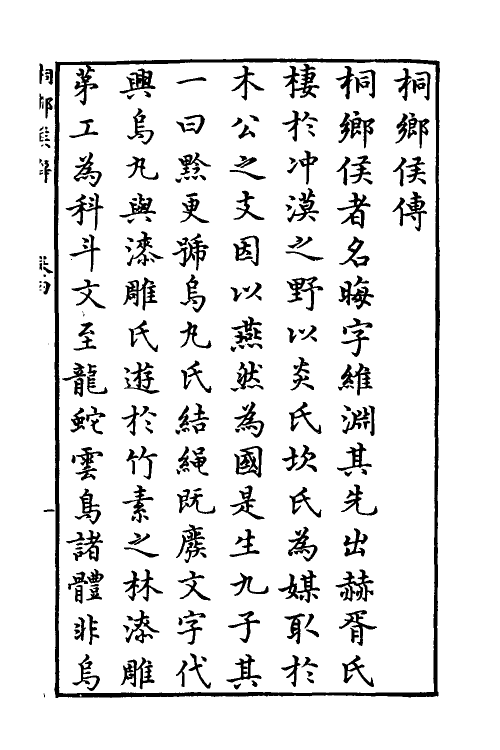 桐鄉侯傳
桐鄉侯者名晦字維淵其先出赫胥氏
棲於冲漠之野以炎氏坎氏為媒取於
木公之支因以燕然為國是生九子其
一曰黔更號烏丸氏結繩既廢文字代
興烏丸與漆雕氏遊於竹素之林漆雕
苐工為科斗文至龍蛇雲鳥諸體非烏